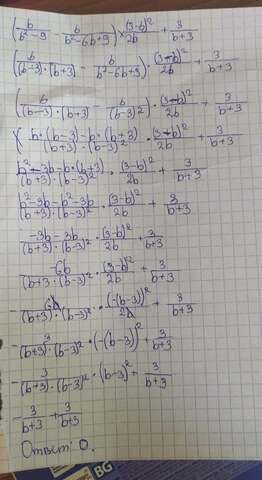 (b/(b²-9) - b/(b²-6b+9)) × (3-b)²/2b + 3/(b+3)
(b/((b-3)·(b+3)) - b/(b²-6b+9)) · (3-b)²/2b + 3/(b+3)
(b/((b-3)·(b+3)) - b/(b-3)²) · (3-b)²/2b + 3/(b+3)
(b·(b-3)-b·(b+3))/((b+3)·(b-3)²) · (3-b)²/2b + 3/(b+3)
(b²-3b-b·(b+3))/((b+3)·(b-3)²) · (3-b)²/2b + 3/(b+3)
(b²-3b-b²-3b)/((b+3)·(b-3)²) · (3-b)²/2b + 3/(b+3)
(-3b-3b)/((b+3)·(b-3)²) · (3-b)²/2b + 3/(b+3)
-6b/((b+3)·(b-3)²) · (3-b)²/2b + 3/(b+3)
- 6b/((b+3)·(b-3)²) · (-(b-3))²/2b + 3/(b+3)
- 3/((b+3)·(b-3)²) · (-(b-3))² + 3/(b+3)
- 3/((b+3)·(b-3)²) · (b-3)² + 3/(b+3)
- 3/(b+3) + 3/(b+3)
Ответ: 0.
BG